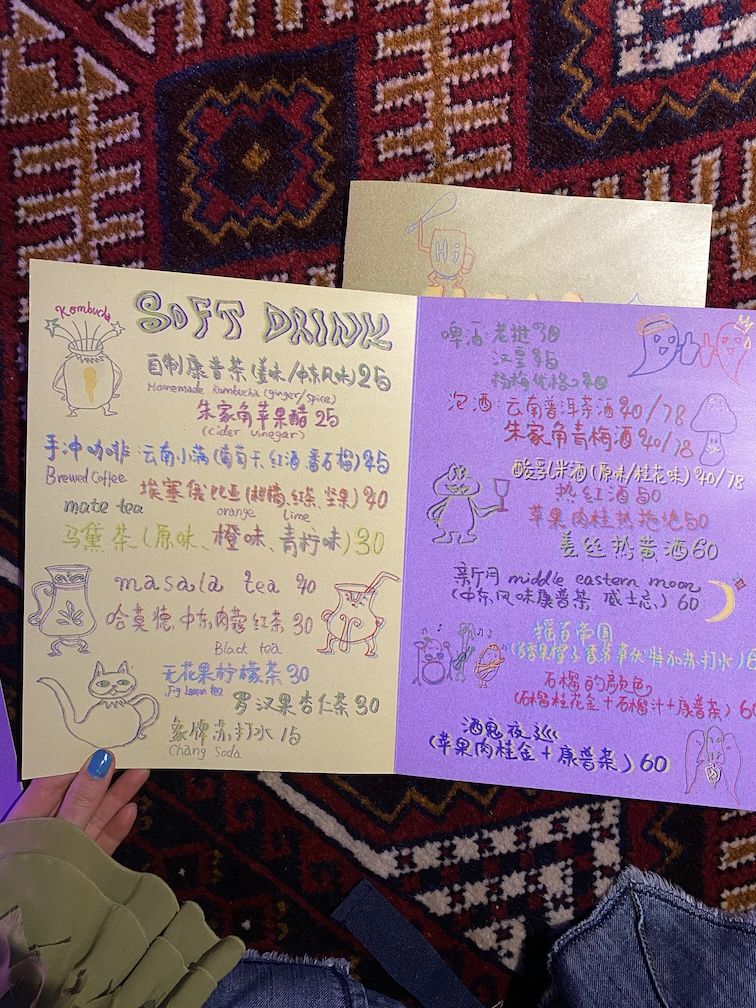 Hi
Kombucha
SOFT DRINK
自制康普茶(姜味/中东风味)25
Homemade Kombucha (ginger/spice)
朱家角苹果醋 25
(cider vinegar)
手冲咖啡 云南小满(葡萄干、红酒 番石榴)45
Brewed Coffee
埃塞俄比亚(柑橘、红茶、坚果)40
mate tea
orange lime
马黛茶(原味、橙味、青柠味)30
masala tea 40
哈莫德中东肉蔻红茶 30
Black tea
无花果柠檬茶 30
Fig Lemon tea
罗汉果杏仁茶 30
象牌苏打水 15
Chang Soda
啤酒 老挝 30
45
杨梅优格
泡酒:云南普洱茶酒 40/78
朱家角青梅酒 40/78
米酒(原味/桂花味) 40/78
热红酒 50
苹果肉桂热 50
姜丝热黄酒 60
新月 middle eastern moon
(中东风味康普茶 威士忌) 60
摇首帝国
伏特加苏打水)
石榴的颜色
(石榴桂花金+石榴汁+康普茶)
酒鬼夜巡
(苹果肉桂金+康普茶) 60